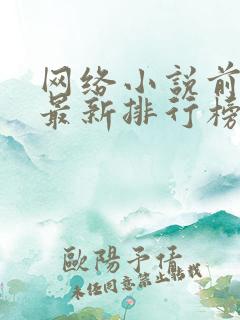 网络小说前
最新排行榜
歐陽予倩
未经同意禁止转载